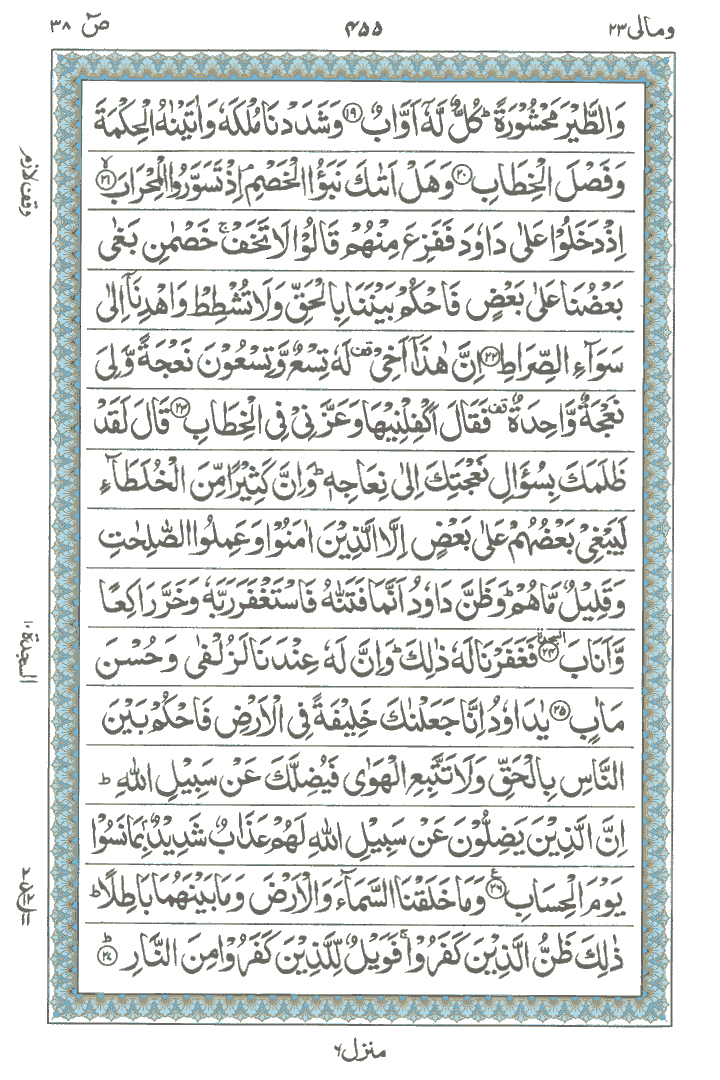 ومالى ٢٣
٤٥٥
صٓ ٣٨
وَالطَّيْرَ مَحْشُوْرَةً ؕ كُلٌّ لَّهٗۤ اَوَّابٌ ﴿۱۹﴾ وَشَدَدْنَا مُلْكَهٗ وَاٰتَيْنٰهُ الْحِكْمَةَ
وَفَصْلَ الْخِطَابِ ﴿۲۰﴾ وَهَلْ اَتٰىكَ نَبَؤُا الْخَصْمِ ۘ اِذْ تَسَوَّرُوا الْمِحْرَابَ ﴿۲۱﴾ۙ
وقف لازم
اِذْ دَخَلُوْا عَلٰى دَاوٗدَ فَفَزِعَ مِنْهُمْ قَالُوْا لَا تَخَفْ ۚ خَصْمٰنِ بَغٰى
بَعْضُنَا عَلٰى بَعْضٍ فَاحْكُمْ بَيْنَنَا بِالْحَقِّ وَلَا تُشْطِطْ وَاهْدِنَاۤ اِلٰى
سَوَآءِ الصِّرَاطِ ﴿۲۲﴾ اِنَّ هٰذَاۤ اَخِيْ قف لَهٗ تِسْعٌ وَّتِسْعُوْنَ نَعْجَةً وَّلِيَ
نَعْجَةٌ وَّاحِدَةٌ قف فَقَالَ اَكْفِلْنِيْهَا وَعَزَّنِيْ فِي الْخِطَابِ ﴿۲۳﴾ قَالَ لَقَدْ
ظَلَمَكَ بِسُؤَالِ نَعْجَتِكَ اِلٰى نِعَاجِهٖ ؕ وَاِنَّ كَثِيْرًا مِّنَ الْخُلَطَآءِ
لَيَبْغِيْ بَعْضُهُمْ عَلٰى بَعْضٍ اِلَّا الَّذِيْنَ اٰمَنُوْا وَعَمِلُوا الصّٰلِحٰتِ
وَقَلِيْلٌ مَّا هُمْ ؕ وَظَنَّ دَاوٗدُ اَنَّمَا فَتَنّٰهُ فَاسْتَغْفَرَ رَبَّهٗ وَخَرَّ رَاكِعًا
وَّاَنَابَ ﴿۲۴﴾ السجدة فَغَفَرْنَا لَهٗ ذٰلِكَ ؕ وَاِنَّ لَهٗ عِنْدَنَا لَزُلْفٰى وَحُسْنَ
السجدة ١٠
مَاٰبٍ ﴿۲۵﴾ يٰدَاوٗدُ اِنَّا جَعَلْنٰكَ خَلِيْفَةً فِي الْاَرْضِ فَاحْكُمْ بَيْنَ
النَّاسِ بِالْحَقِّ وَلَا تَتَّبِعِ الْهَوٰى فَيُضِلَّكَ عَنْ سَبِيْلِ اللّٰهِ ؕ
اِنَّ الَّذِيْنَ يَضِلُّوْنَ عَنْ سَبِيْلِ اللّٰهِ لَهُمْ عَذَابٌ شَدِيْدٌۢ بِمَا نَسُوْا
يَوْمَ الْحِسَابِ ﴿۲۶﴾ ع وَمَا خَلَقْنَا السَّمَآءَ وَالْاَرْضَ وَمَا بَيْنَهُمَا بَاطِلًا ؕ
ذٰلِكَ ظَنُّ الَّذِيْنَ كَفَرُوْا ۚ فَوَيْلٌ لِّلَّذِيْنَ كَفَرُوْا مِنَ النَّارِ ﴿۲۷﴾ؕ
منزل ٦